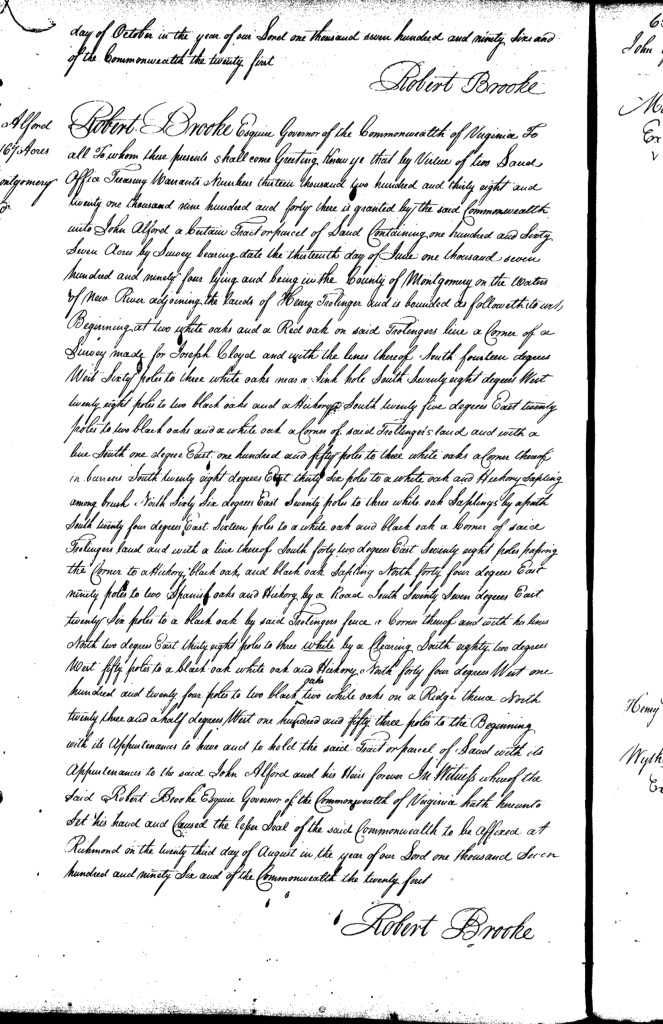 day of October in the year of our Lord one thousand seven hundred and ninety six and
of the Commonwealth the twenty first
Robert Brooke
Alford
167 Acres
Montgomery
Robert Brooke Esquire Governor of the Commonwealth of Virginia To
all To whom these presents shall come Greeting, Know ye that by Virtue of two Land
Office Treasury Warrants Numbers thirteen thousand two hundred and thirty eight and
twenty one thousand nine hundred and forty there is granted by the said Commonwealth
unto John Alford a Certain Tract or parcel of Land Containing one hundred and Sixty
Seven Acres by Survey bearing date the thirteenth day of June one thousand seven
hundred and ninety four lying and being in the County of Montgomery on the Waters
of New River adjoining the lands of Henry Trolinger and is bounded as followeth to wit,
Beginning at two white oaks and a Red oak on said Trolingers line a Corner of a
Survey made for Joseph Cloyd and with the lines thereof South fourteen degrees
West Sixty poles to three white oaks near a Sink hole South Seventy eight degrees West
twenty eight poles to two black oaks and a Hickory South twenty five degrees East twenty
poles to two black oaks and a white oak a Corner of said Trollinger's land and with a
line South one degree East one hundred and fifty poles to three white oaks a Corner thereof
in barrens South twenty eight degrees East thirty Six poles to a white oak and Hickory Sapling
among brush North Sixty Six degrees East Seventy poles to three white oak Saplings by a path
South twenty four degrees East Sixteen poles to a white oak and black oak a Corner of said
Trolingers land and with a line thereof South forty two degrees East Seventy eight poles passing
the Corner to a Hickory, black oak, and black oak Sapling North forty four degrees East
ninety poles to two Spanish oaks and Hickory by a Road South Seventy Seven degrees East
twenty Six poles to a black oak by said Trolingers fence a Corner thereof and with his lines
North two degrees East thirty eight poles to three white by a Clearing South eighty two degrees
West fifty poles to a black oak white oak and Hickory North forty four degrees West one
hundred and twenty four poles to two black oaks two white oaks on a Ridge thence North
twenty three and a half degrees West one hundred and fifty three poles to the Beginning
with its Appurtenances to have and to hold the said Tract or parcel of Land with its
Appurtenances to the said John Alford and his Heirs forever In Witness whereof the
said Robert Brooke Esquire Governor of the Commonwealth of Virginia hath hereunto
Set his hand and Caused the lesser Seal of the said Commonwealth to be Affixed at
Richmond on the twenty third day of August in the year of our Lord one thousand Seven
hundred and ninety Six and of the Commonwealth the twenty first
Robert Brooke
John
Henry